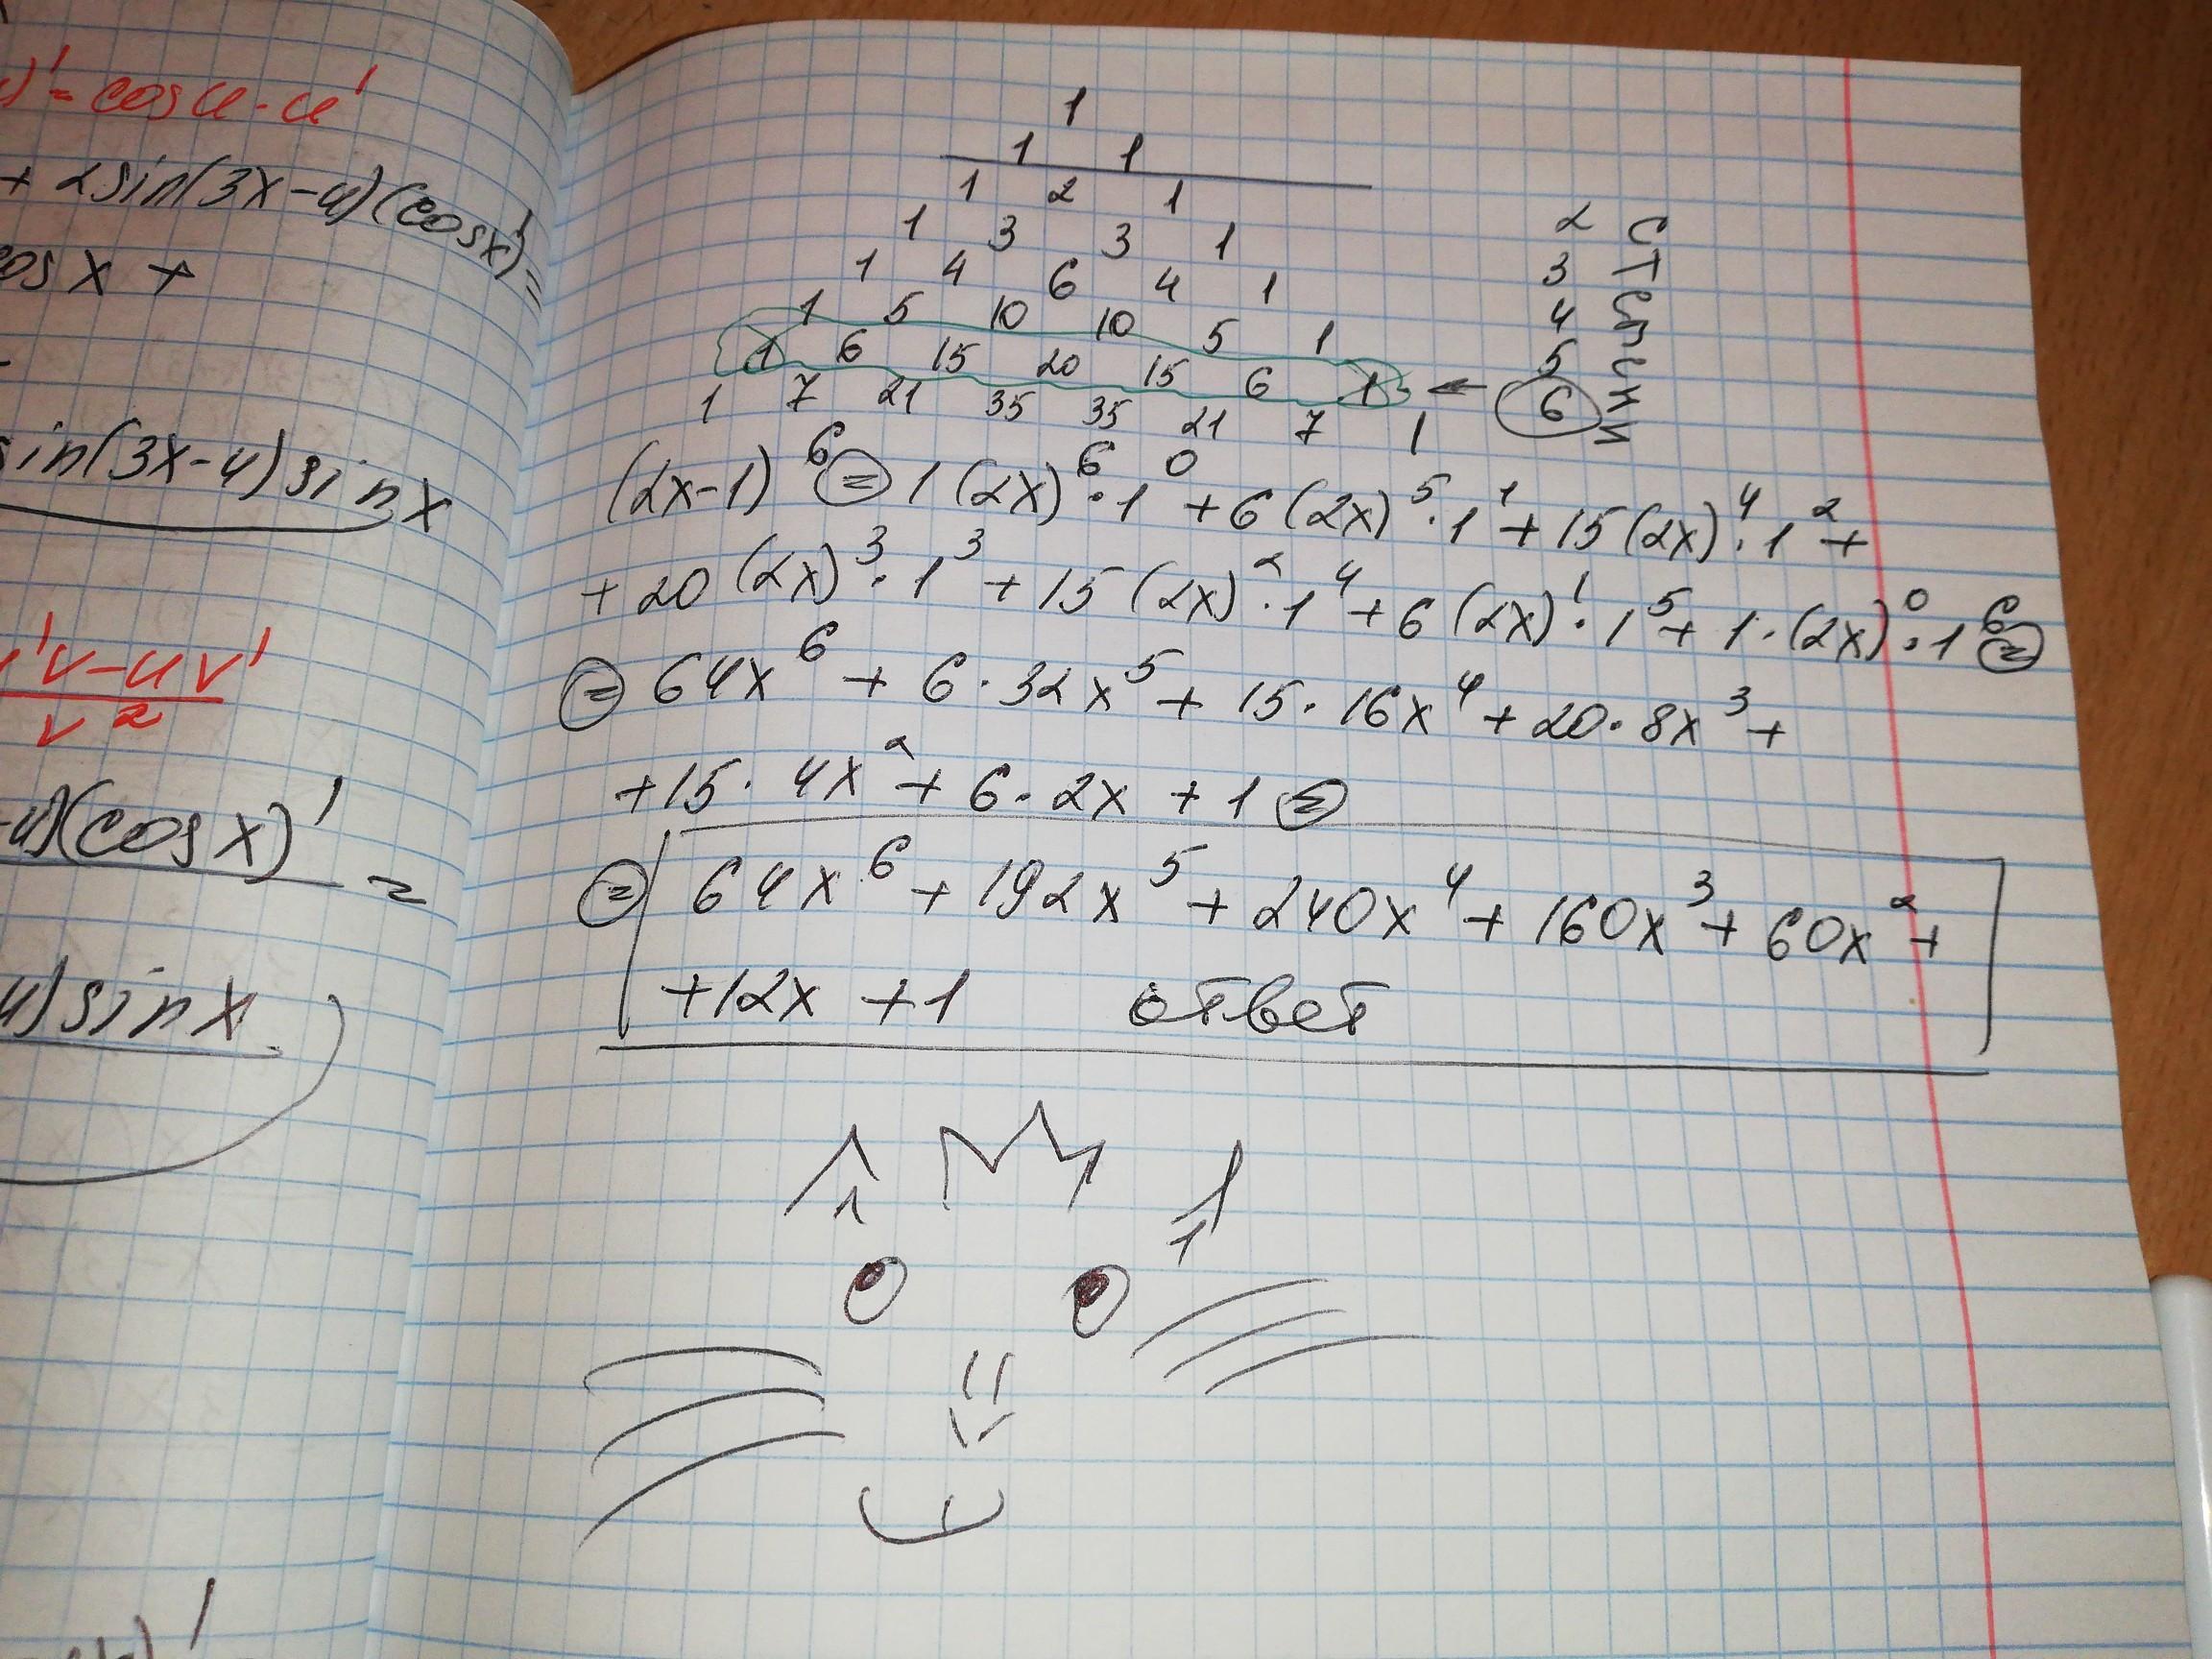 )' = cos u · u'
+ 2sin(3x-4)(cosx)' =
cosx +
sin(3x-4)sinx
u'v-uv'
v²
-4)(cosx)' =
4)sinx
1
1 1
1 2 1
1 3 3 1
1 4 6 4 1
1 5 10 10 5 1
1 6 15 20 15 6 1 ←
1 7 21 35 35 21 7 1
2
3
4
5
6
степени
(2x-1)⁶ = 1(2x)⁶·1⁰ + 6(2x)⁵·1¹ + 15(2x)⁴·1² +
+ 20(2x)³·1³ + 15(2x)²·1⁴ + 6(2x)¹·1⁵ + 1·(2x)⁰·1⁶ =
= 64x⁶ + 6·32x⁵ + 15·16x⁴ + 20·8x³ +
+ 15·4x² + 6·2x + 1 =
= 64x⁶ + 192x⁵ + 240x⁴ + 160x³ + 60x² +
+ 12x + 1 ответ